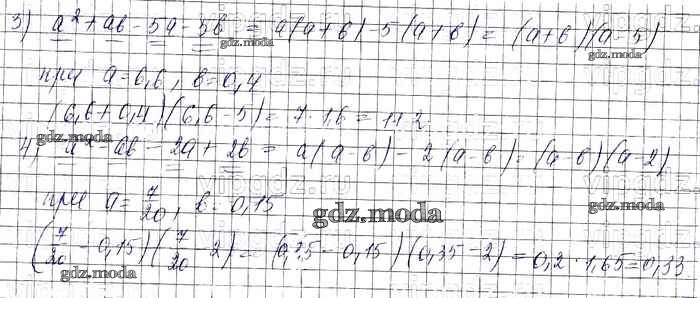 3) a² + ab - 5a - 5b = a(a+b) - 5(a+b) = (a+b)(a-5)
gdz.moda gdz.moda
при a=6,6, b=0,4
(6,6+0,4)(6,6-5)= 7·1,6 = 11,2
gdz.moda
4) a² - ab - 2a + 2b = a(a-b) - 2(a-b) = (a-b)(a-2)
vipgdz.ru
при a = 7/20, b = 0,15
gdz.moda
(7/20 - 0,15)(7/20 - 2) = (0,35 - 0,15)(0,35 - 2) = 0,2 · 1,65 = 0,33
gdz.moda gdz.moda